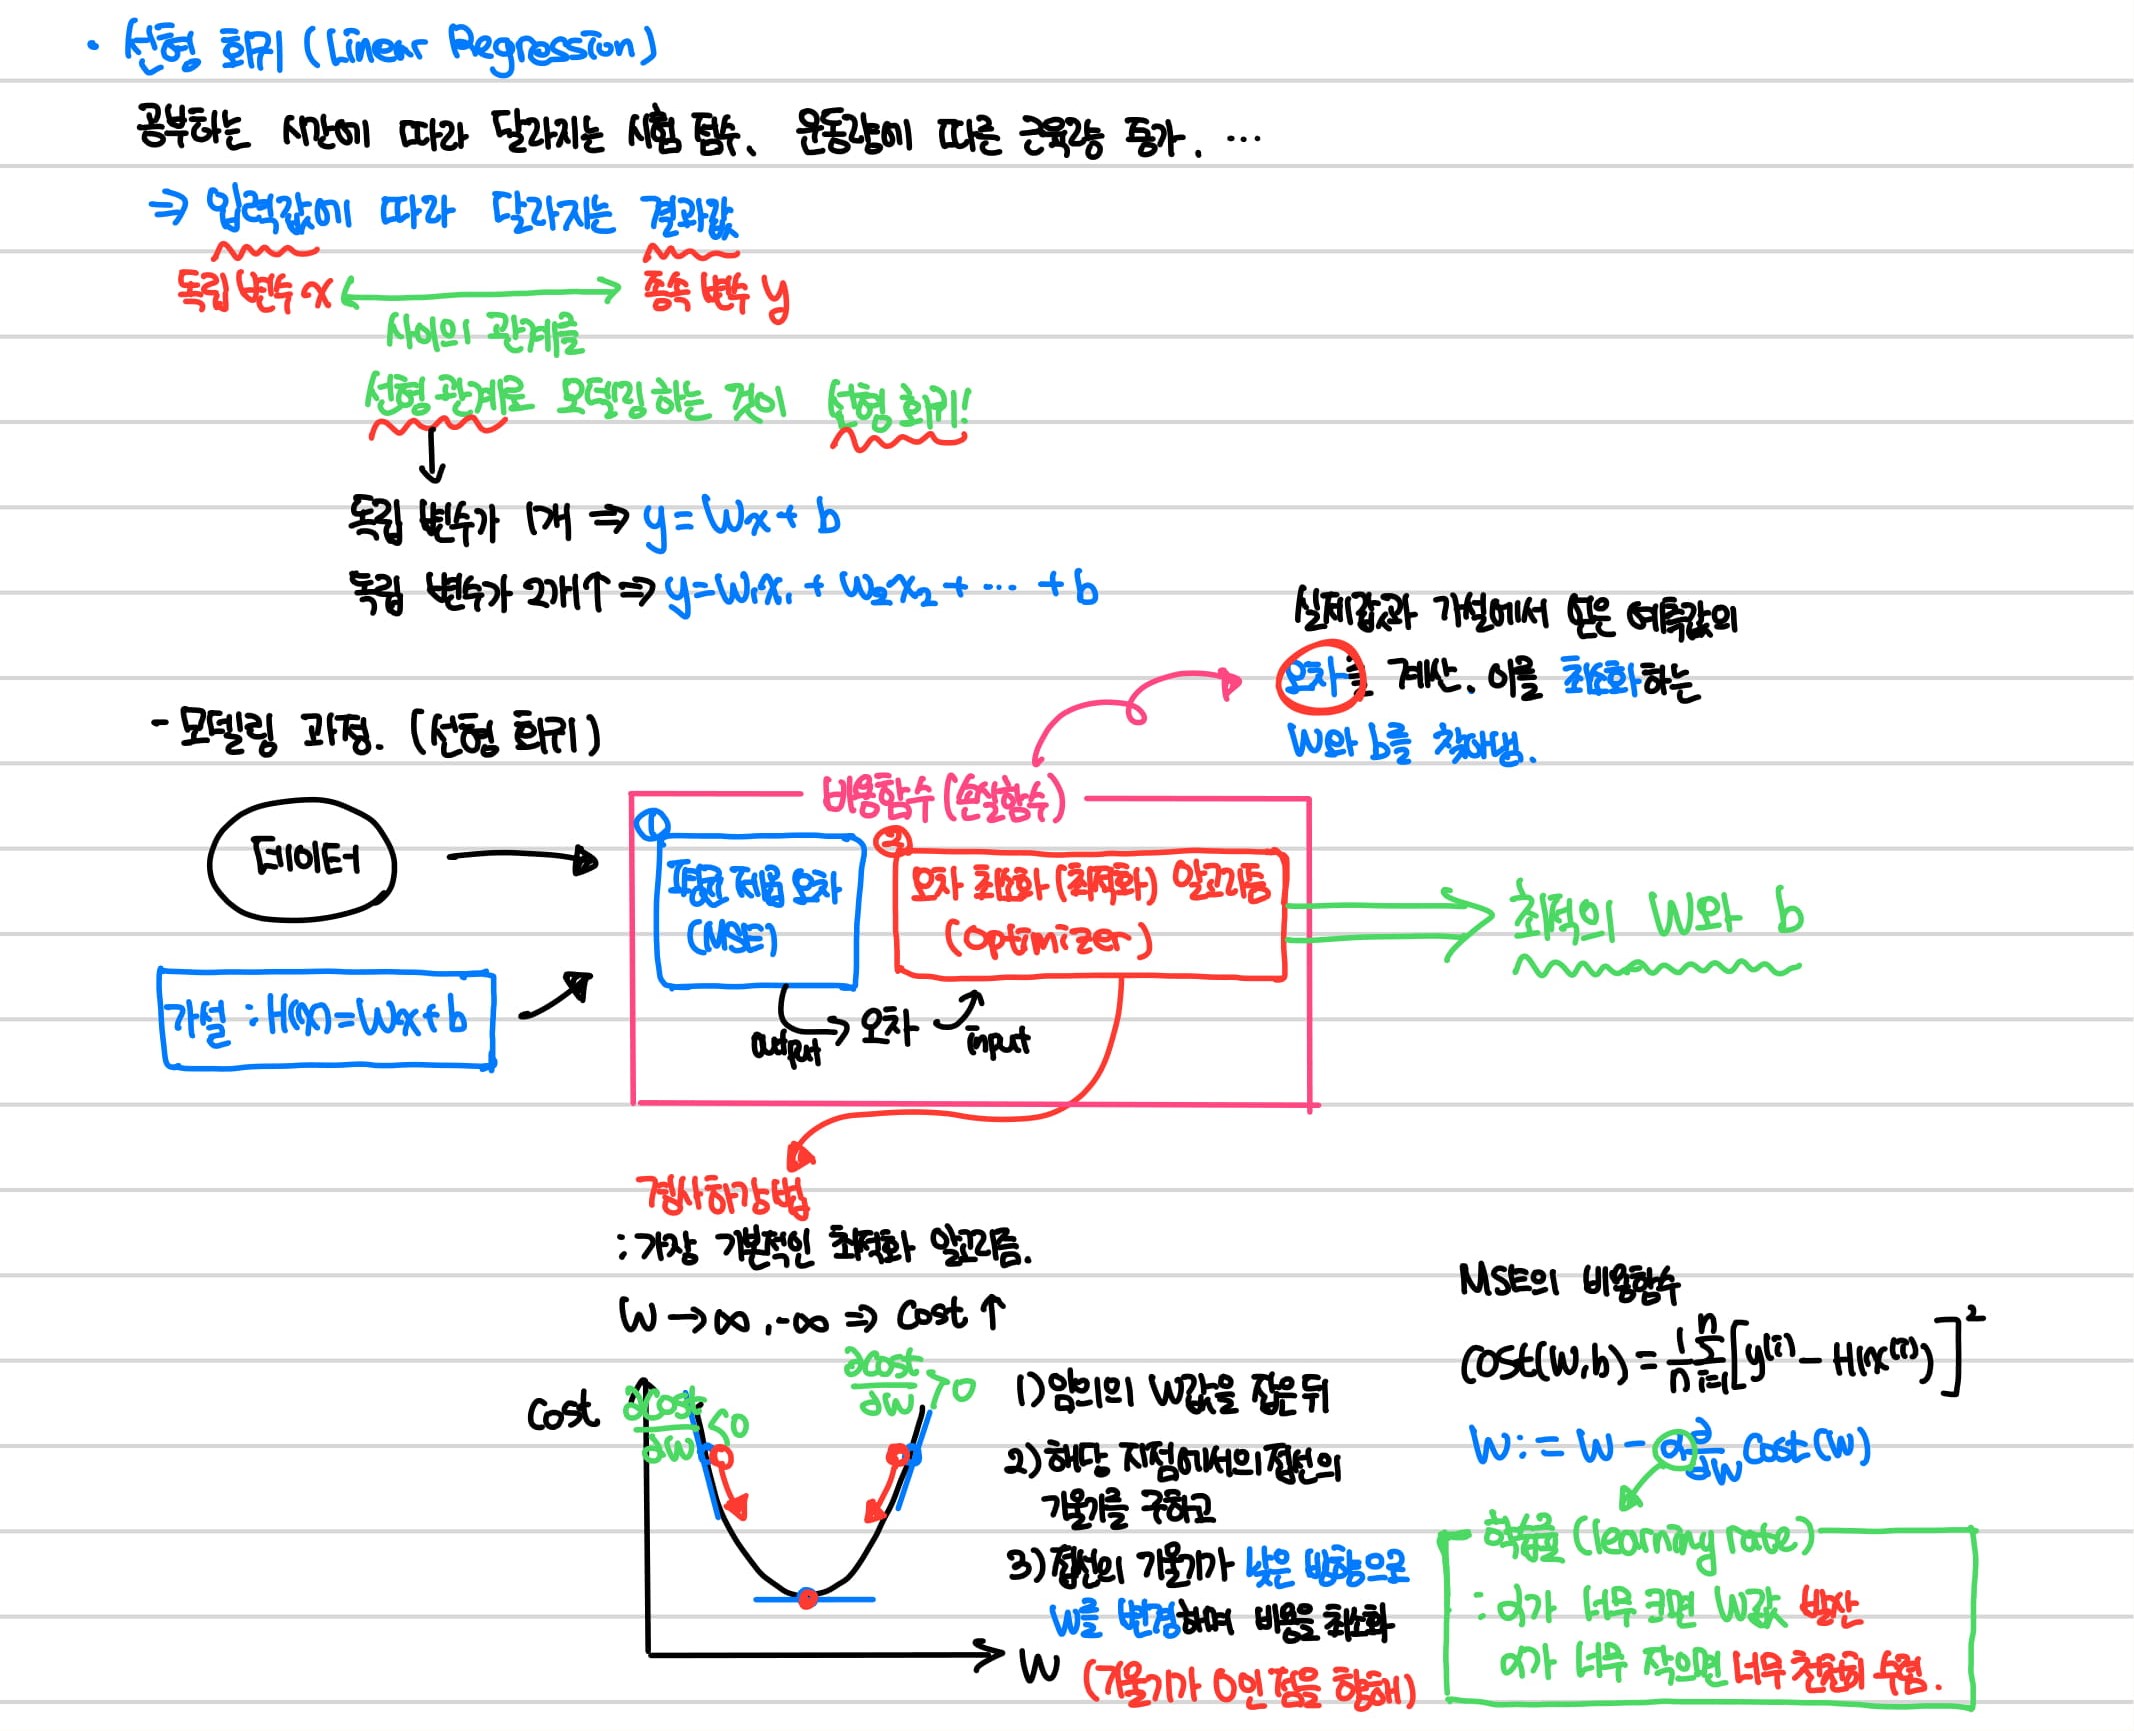 · 선형 회귀 (Linear Regression)
공부하는 시간에 따라 달라지는 시험 점수、 운동량에 따른 근육량 증가. ···
⇒ 입력값에 따라 달라지는 결과값
독립 변수 x ↔ 종속 변수 y
사이의 관계를
선형 관계로 모델링 하는 것이 선형 회귀!
독립 변수가 1개 ⇒ y = Wx + b
독립 변수가 2개↑ ⇒ y = W₁x₁ + W₂x₂ + ··· + b
실제값과 가설에서 얻은 예측값의
오차를 계산. 이를 최소화하는
W와 b를 찾아냄.
- 모델링 과정. (선형 회귀)
비용함수 (손실함수)
데이터
①
평균 제곱 오차
(MSE)
②
오차 최소화 (최적화) 알고리즘
(Optimizer)
최적의 W와 b
가설 : H(x) = Wx + b
output → 오차 input
경사하강법
: 가장 기본적인 최적화 알고리즘.
W → ∞, -∞ ⇒ Cost ↑
Cost
∂Cost/∂W < 0
∂Cost/∂W > 0
W
1) 임의의 W값을 잡은 뒤
2) 해당 지점에서의 접선의
기울기를 구하고
3) 접선의 기울기가 낮은 방향으로
W를 변경해며 비용을 최소화
(기울기가 0인 점을 향해)
MSE의 비용함수
Cost(W, b) = 1/n Σⁿᵢ₌₁ [y⁽ⁱ⁾ - H(x⁽ⁱ⁾)]²
W := W - α ∂/∂W Cost(W)
학습률 (learning rate)
: α가 너무 크면 W값 발산
α가 너무 작으면 너무 천천히 수렴.